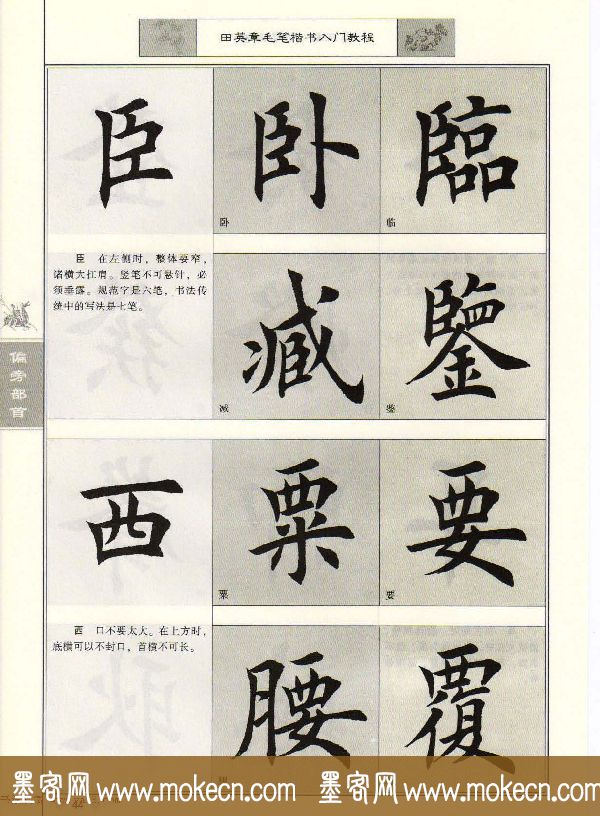 田英章毛笔楷书入门教程
臣 卧 臨
卧 临
臣 在左侧时，整体要窄，
诸横大扛肩。竖笔不可悬针，必
须垂露。规范字是六笔，书法传
统中的写法是七笔。
臧 鑒
鉴
偏旁部首
西 粟 要
粟 要
西 口不要太大。在上方时，
底横可以不封口，首横不可长。
腰 覆
墨客网 www.mokecn.com 墨客网 www.mokecn.com
44